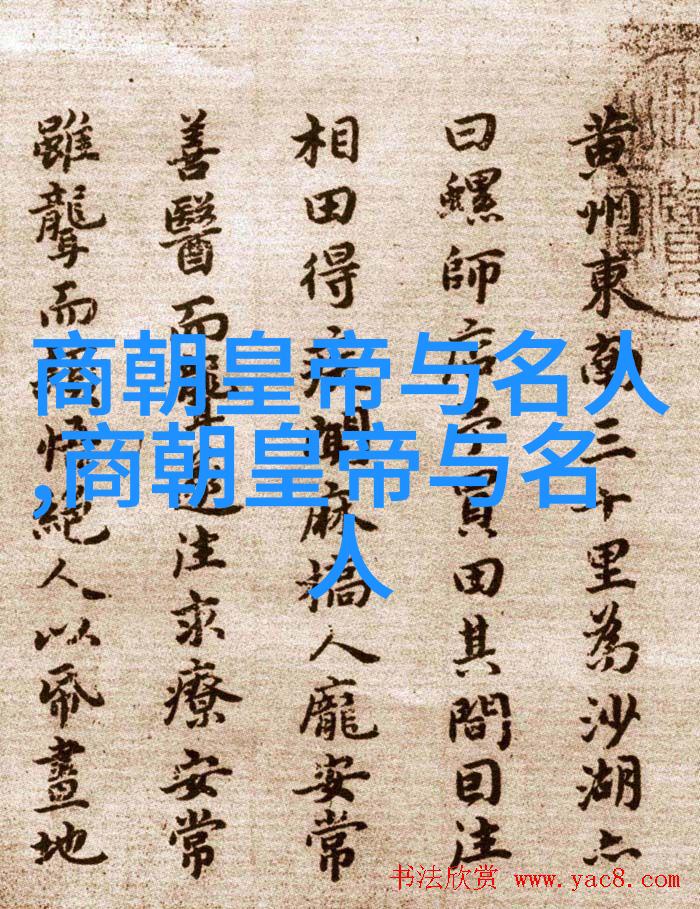 黄州東南三十里為沙湖亦
曰螺師店予買田其間因往
相田得疾聞麻橋人龐安常
善醫而聾遂往求療安常
雖聾而悟絕人以紙畫地
商朝皇帝与名人
,商朝皇帝与名
人
书法欣赏 www.yac8.com